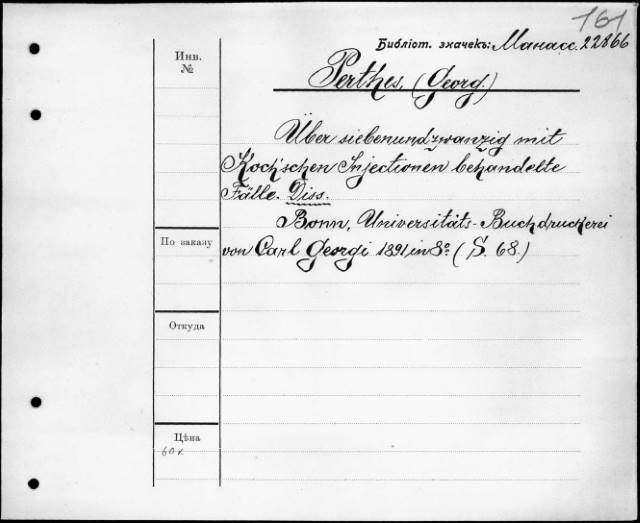 161
Библіот. значекъ: Манасс. 22866
Инв.
№
Perthes, (Georg.)
Über siebenundzwanzig mit
Koch'schen Injectionen behandelte
Fälle. Diss.
Bonn, Universitäts-Buchdruckerei
По заказу
von Carl Georgi 1891, in 8º (S. 68.)
Откуда
Цѣна
60 к.